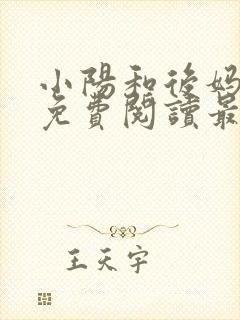 小陽和後妈
免費閱讀最
王天宇